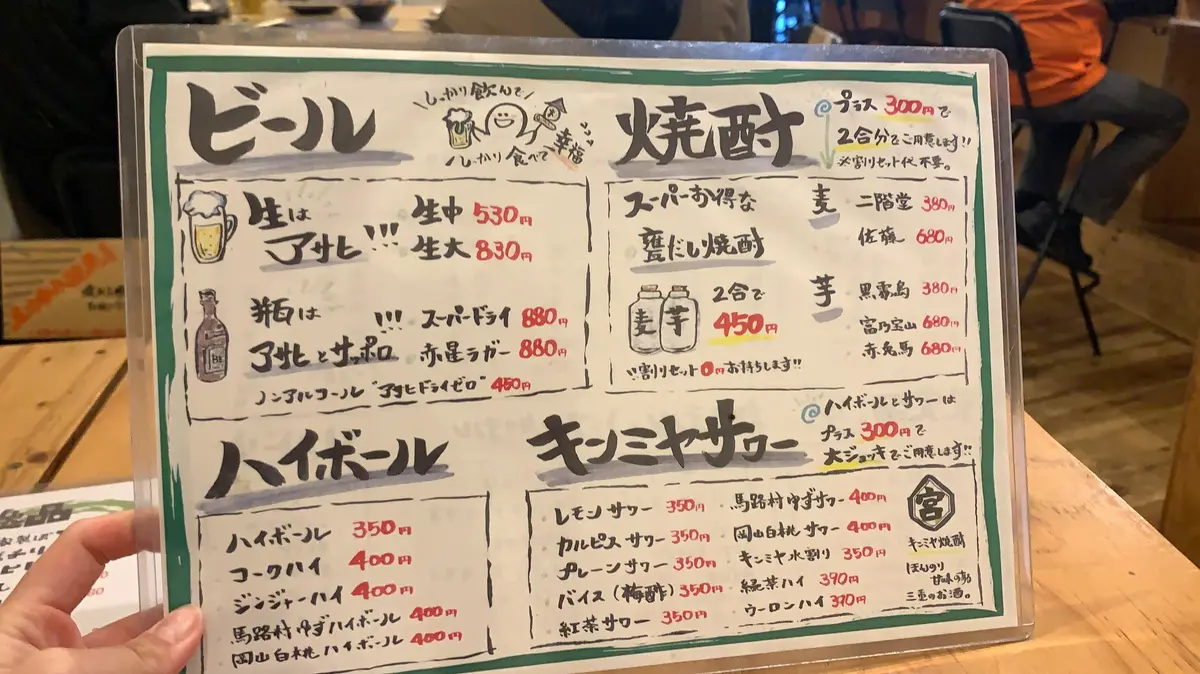 ビール
しっかり飲んで
しっかり食べて
幸福
生は
アサヒ!!!
生中 530円
生大 830円
瓶は
アサヒとサッポロ!!!
スーパードライ 880円
赤星ラガー 880円
ノンアルコール "アサヒドライゼロ" 450円
焼酎
プラス 300円で
2合分でご用意します!!
※割りセット代不要。
スーパーお得な
甕だし焼酎
麦 芋
2合で
450円
割りセット0円お持ちします!!
麦 二階堂 380円
佐藤 680円
芋 黒霧島 380円
富乃宝山 680円
赤兎馬 680円
ハイボール
ハイボール 350円
コークハイ 400円
ジンジャーハイ 400円
馬路村ゆずハイボール 400円
岡山白桃ハイボール 400円
キンミヤサワー
ハイボールとサワーは
プラス 300円で
大ジョッキでご用意します!!
レモンサワー 350円
カルピスサワー 350円
プレーンサワー 350円
バイス(梅酢) 350円
紅茶サワー 350円
馬路村ゆずサワー 400円
岡山白桃サワー 400円
キンミヤ水割り 350円
緑茶ハイ 390円
ウーロンハイ 390円
宮
キンミヤ焼酎
ほんのり
甘味の有る
三重のお酒。
逸品